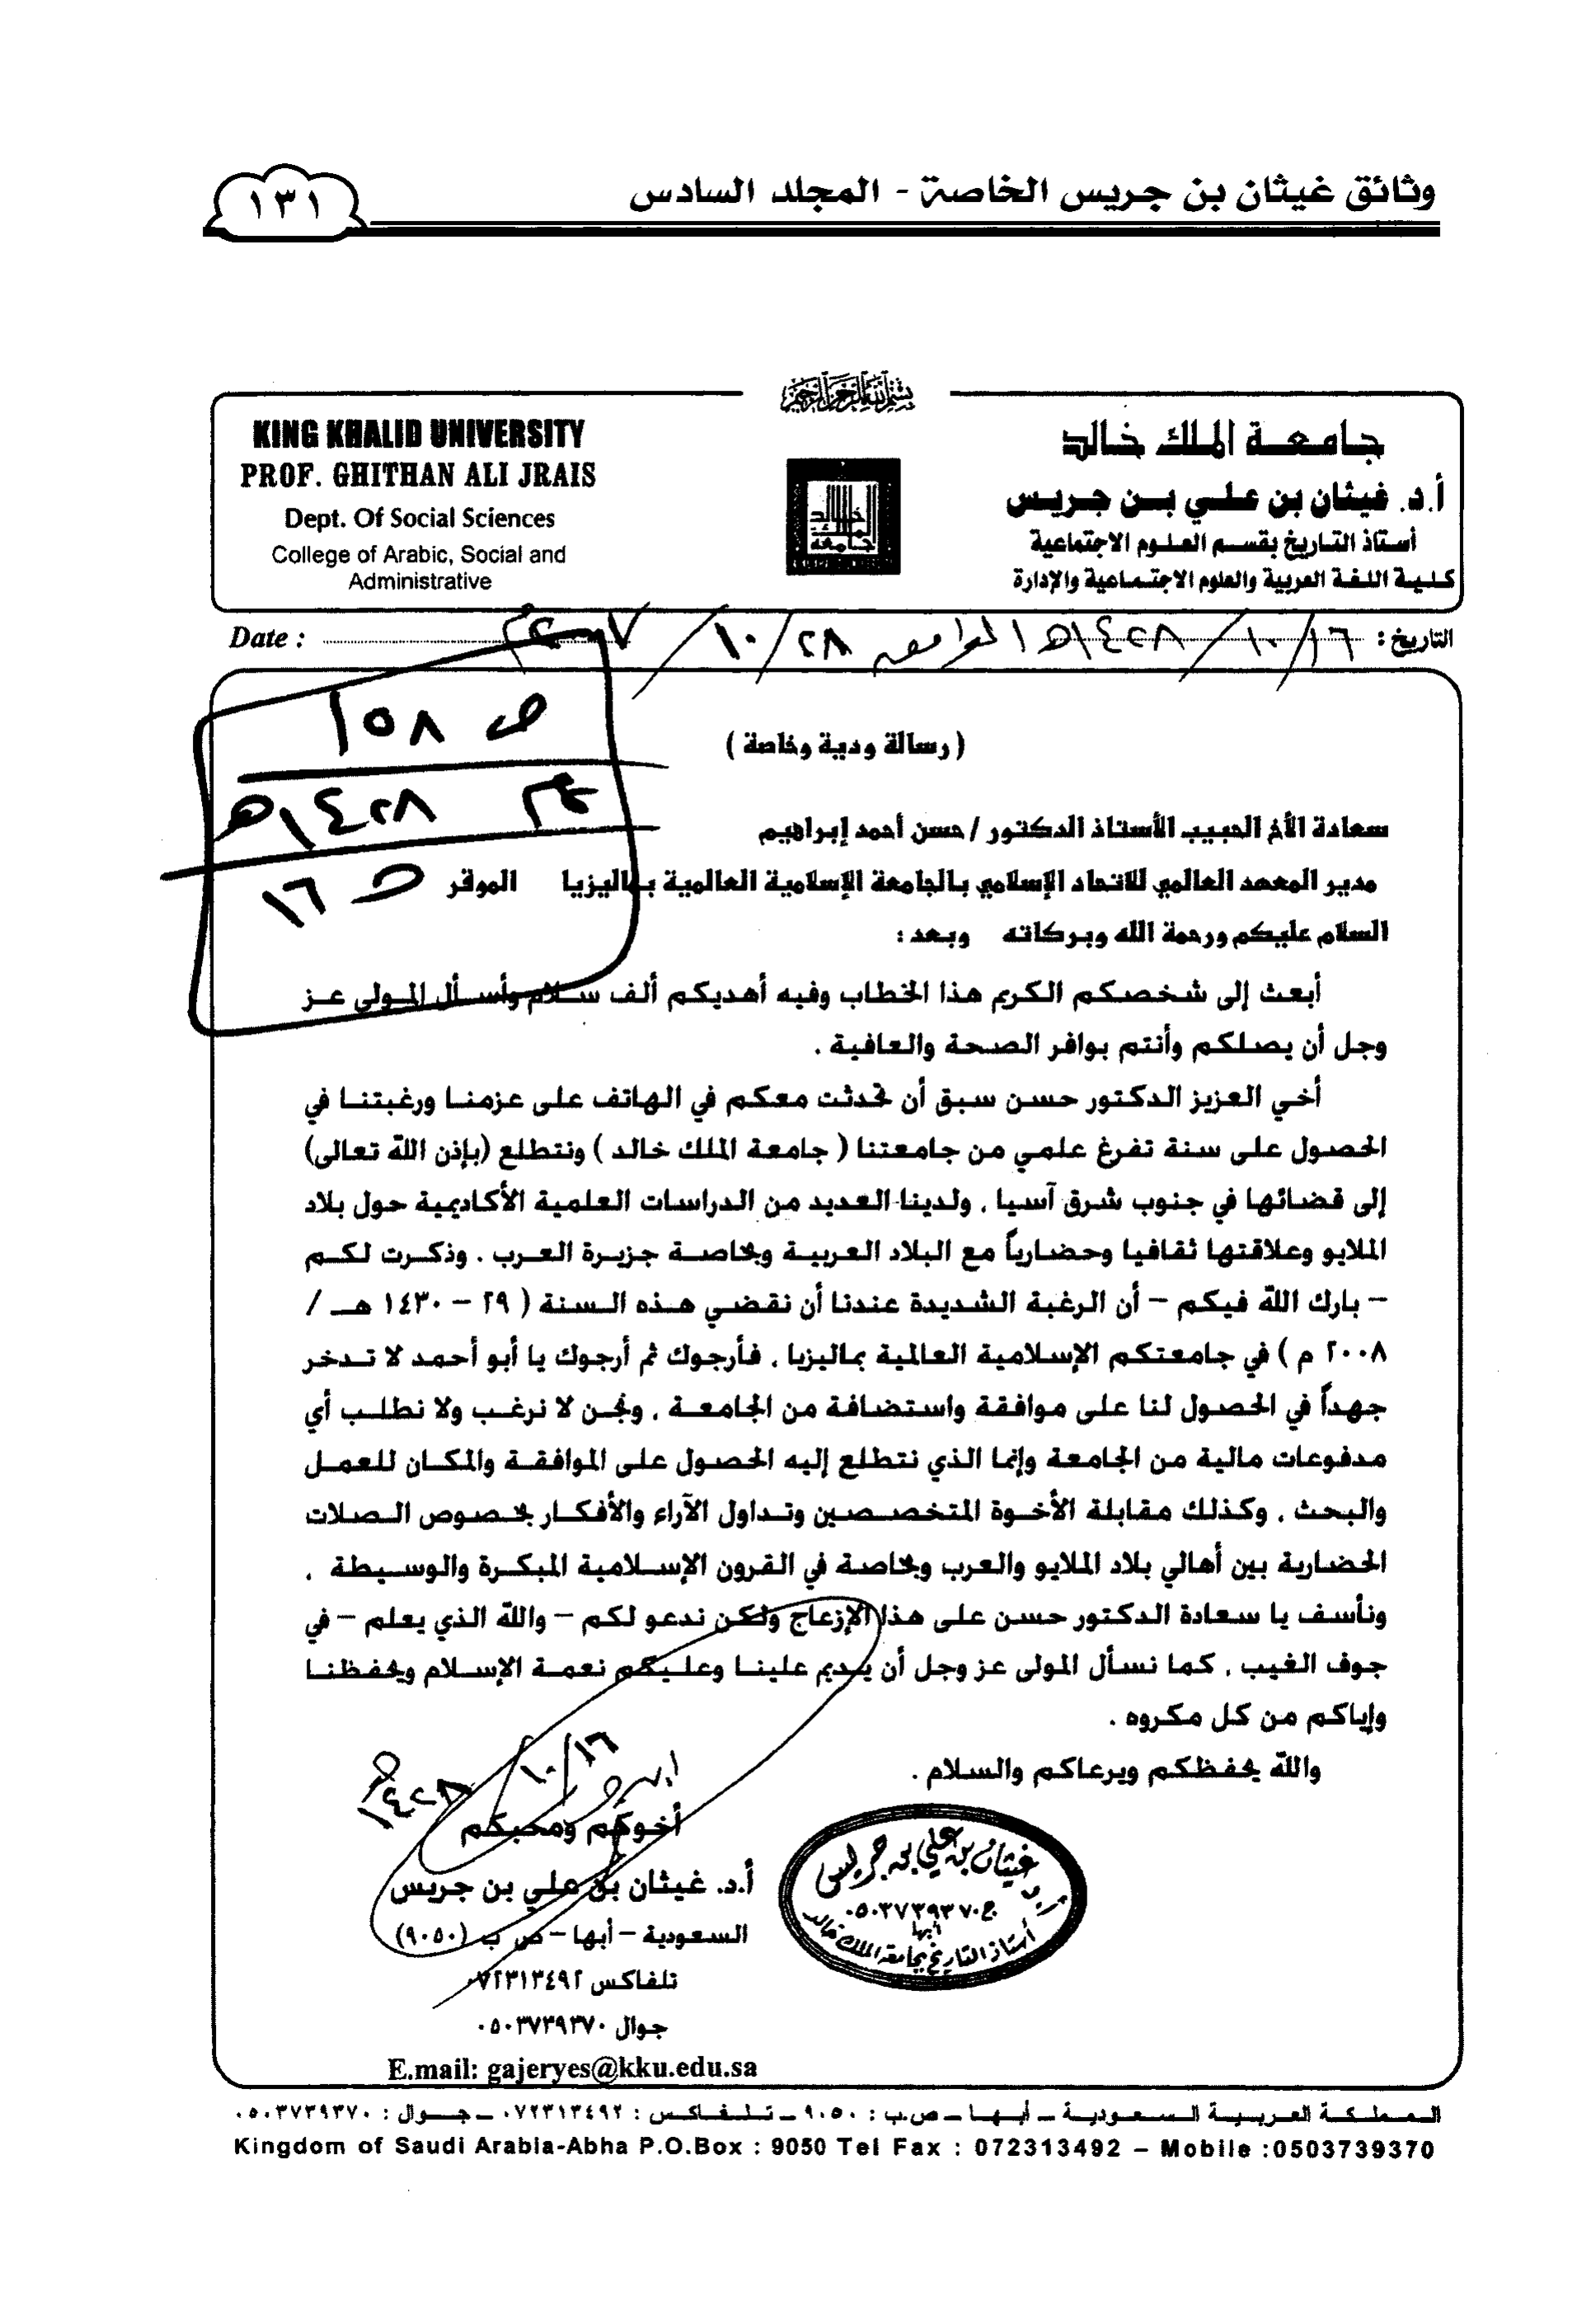 وثائق غيثان بن جريس الخاصة - المجلد السادس
١٣١
KING KHALID UNIVERSITY
PROF. GHITHAN ALI JRAIS
Dept. Of Social Sciences
College of Arabic, Social and
Administrative
جامعة الملك خالد
أ.د. غيثان بن علي بن جريس
أستاذ التاريخ بقسم العلوم الاجتماعية
كلية اللغة العربية والعلوم الاجتماعية والإدارة
التاريخ : ١٦/١٠/١٤٢٨هـ الموافق ٢٨/١٠/
Date :
ص ١٥٨
١٤٢٨هـ
١٦
( رسالة ودية وخاصة )
سعادة الأخ الحبيب الأستاذ الدكتور / حسن أحمد إبراهيم
مدير المعهد العالمي للاتحاد الإسلامي بالجامعة الإسلامية العالمية بماليزيا الموقر
السلام عليكم ورحمة الله وبركاته وبعد :
أبعث إلى شخصكم الكريم هذا الخطاب وفيه أهديكم ألف سلام وأسأل المولى عز
وجل أن يصلكم وأنتم بوافر الصحة والعافية .
أخي العزيز الدكتور حسن سبق أن تحدثت معكم في الهاتف على عزمنا ورغبتنا في
الحصول على سنة تفرغ علمي من جامعتنا ( جامعة الملك خالد ) ونتطلع (بإذن الله تعالى)
إلى قضائها في جنوب شرق آسيا ، ولدينا العديد من الدراسات العلمية الأكاديمية حول بلاد
الملايو وعلاقتها ثقافيا وحضارياً مع البلاد العربية وبخاصة جزيرة العرب . وذكرت لكم
– بارك الله فيكم – أن الرغبة الشديدة عندنا أن نقضي هذه السنة ( ٢٩ – ١٤٣٠ هـ /
٢٠٠٨ م ) في جامعتكم الإسلامية العالمية بماليزيا ، فأرجوك ثم أرجوك يا أبو أحمد لا تدخر
جهداً في الحصول لنا على موافقة واستضافة من الجامعة ، ونحن لا نرغب ولا نطلب أي
مدفوعات مالية من الجامعة وإنما الذي نتطلع إليه الحصول على الموافقة والمكان للعمل
والبحث ، وكذلك مقابلة الأخوة المتخصصين وتداول الآراء والأفكار بخصوص الصلات
الحضارية بين أهالي بلاد الملايو والعرب وبخاصة في القرون الإسلامية المبكرة والوسيطة .
ونأسف يا سعادة الدكتور حسن على هذا الإزعاج ولكن ندعو لكم – والله الذي يعلم – في
جوف الغيب ، كما نسأل المولى عز وجل أن يديم علينا وعليكم نعمة الإسلام ويحفظنا
وإياكم من كل مكروه .
والله يحفظكم ويرعاكم والسلام .
١٦/١٠
١٤٢٨هـ
أخوكم ومحبكم
أ.د. غيثان بن علي بن جريس
السعودية – أبها – ص ب (٩٠٥٠)
تلفاكس ٠٧٢٣١٣٤٩٢
جوال ٠٥٠٣٧٣٩٣٧٠
E.mail: gajeryes@kku.edu.sa
غيثان بن علي بن جريس
ج ٠٥٠٣٧٣٩٣٧٠
أبها
أستاذ التاريخ بجامعة الملك خالد
المملكة العربية السعودية – أبها – ص.ب : ٩٠٥٠ – تلفاكس : ٠٧٢٣١٣٤٩٢ – جوال : ٠٥٠٣٧٣٩٣٧٠
Kingdom of Saudi Arabia-Abha P.O.Box : 9050 Tel Fax : 072313492 – Mobile :0503739370